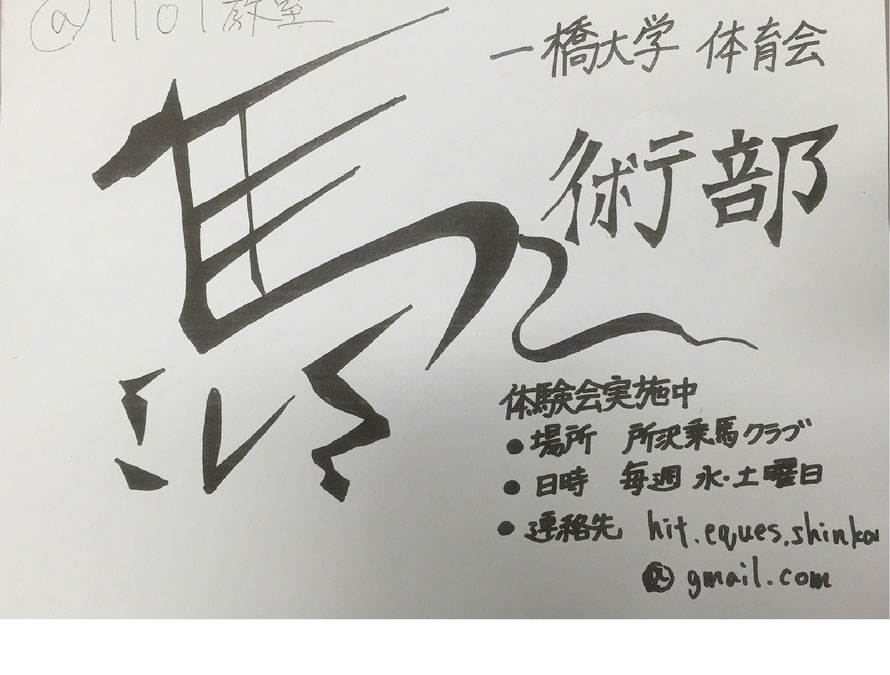 @1101教室
一橋大学 体育会
馬術部
体験会実施中
● 場所 所沢乗馬クラブ
● 日時 毎週 水・土曜日
● 連絡先 hit.eques.shinkan
@gmail.com